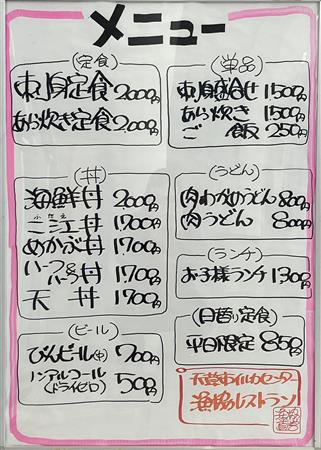 メニュー
(定食)
刺身定食 2000円
あら炊き定食 2000円
(丼)
海鮮丼 2000円
ふたえ
二江丼 1700円
めかぶ丼 1700円
ハーフ&ハーフ丼 1700円
天丼 1700円
(ビール)
びんビール(中) 700円
ノンアルコール
(ドライゼロ) 500円
(単品)
刺身盛合せ 1500円
あら炊き 1500円
ご飯 250円
(うどん)
肉わかめうどん 800円
肉うどん 800円
(ランチ)
お子様ランチ 1300円
(日替り定食)
平日限定 850円
天草市イルカセンター
漁協レストラン